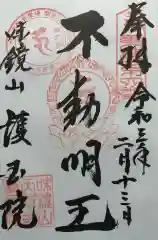 奉拝
令和三年二月十三日
不動明王
味鏡山
護国院